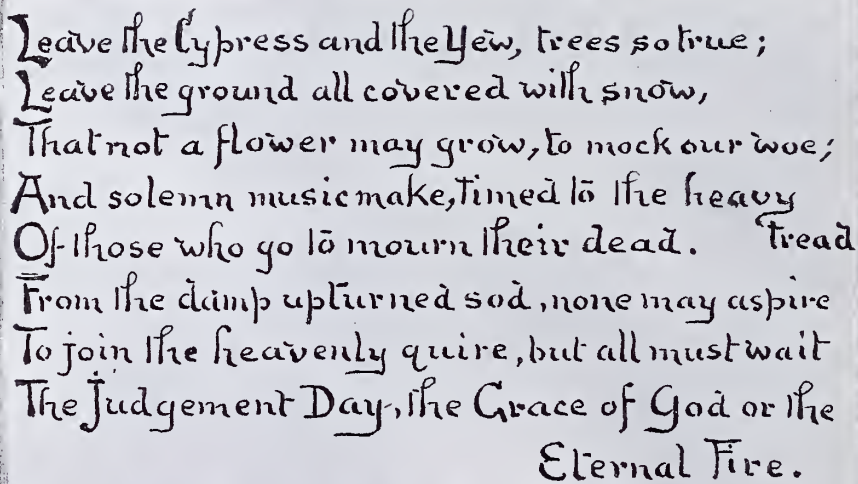 Leave the Cypress and the Yew, trees so true;
Leave the ground all covered with snow,
That not a flower may grow, to mock our woe;
And solemn music make, timed to the heavy
Of those who go to mourn their dead. tread
From the damp upturned sod, none may aspire
To join the heavenly quire, but all must wait
The Judgement Day, the Grace of God or the
Eternal Fire.